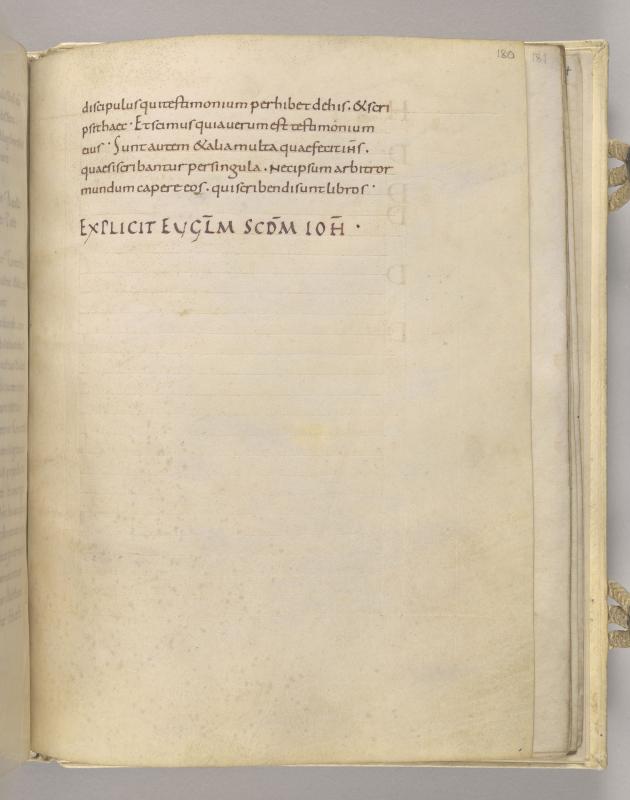 180 181
discipulus qui testimonium perhibet de his. & scri
psit haec. Et scimus quia uerum est testimonium
eius. Sunt autem & alia multa quae fecit ih̅s.
quae si scribantur per singula. Nec ipsum arbitror
mundum capere eos. qui scribendi sunt libros.
EXPLICIT EUGL̅M SCD̅M IOH̅.